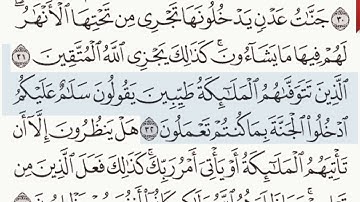 ٣٠ جَنَّـٰتُ عَدْنٍ يَدْخُلُونَهَا تَجْرِى مِن تَحْتِهَا ٱلْأَنْهَـٰرُ ۖ
لَهُمْ فِيهَا مَا يَشَآءُونَ ۚ كَذَٰلِكَ يَجْزِى ٱللَّهُ ٱلْمُتَّقِينَ ٣١
ٱلَّذِينَ تَتَوَفَّىٰهُمُ ٱلْمَلَـٰٓئِكَةُ طَيِّبِينَ ۙ يَقُولُونَ سَلَـٰمٌ عَلَيْكُمُ
ٱدْخُلُوا۟ ٱلْجَنَّةَ بِمَا كُنتُمْ تَعْمَلُونَ ٣٢ هَلْ يَنظُرُونَ إِلَّآ أَن
تَأْتِيَهُمُ ٱلْمَلَـٰٓئِكَةُ أَوْ يَأْتِىَ أَمْرُ رَبِّكَ ۚ كَذَٰلِكَ فَعَلَ ٱلَّذِينَ مِن